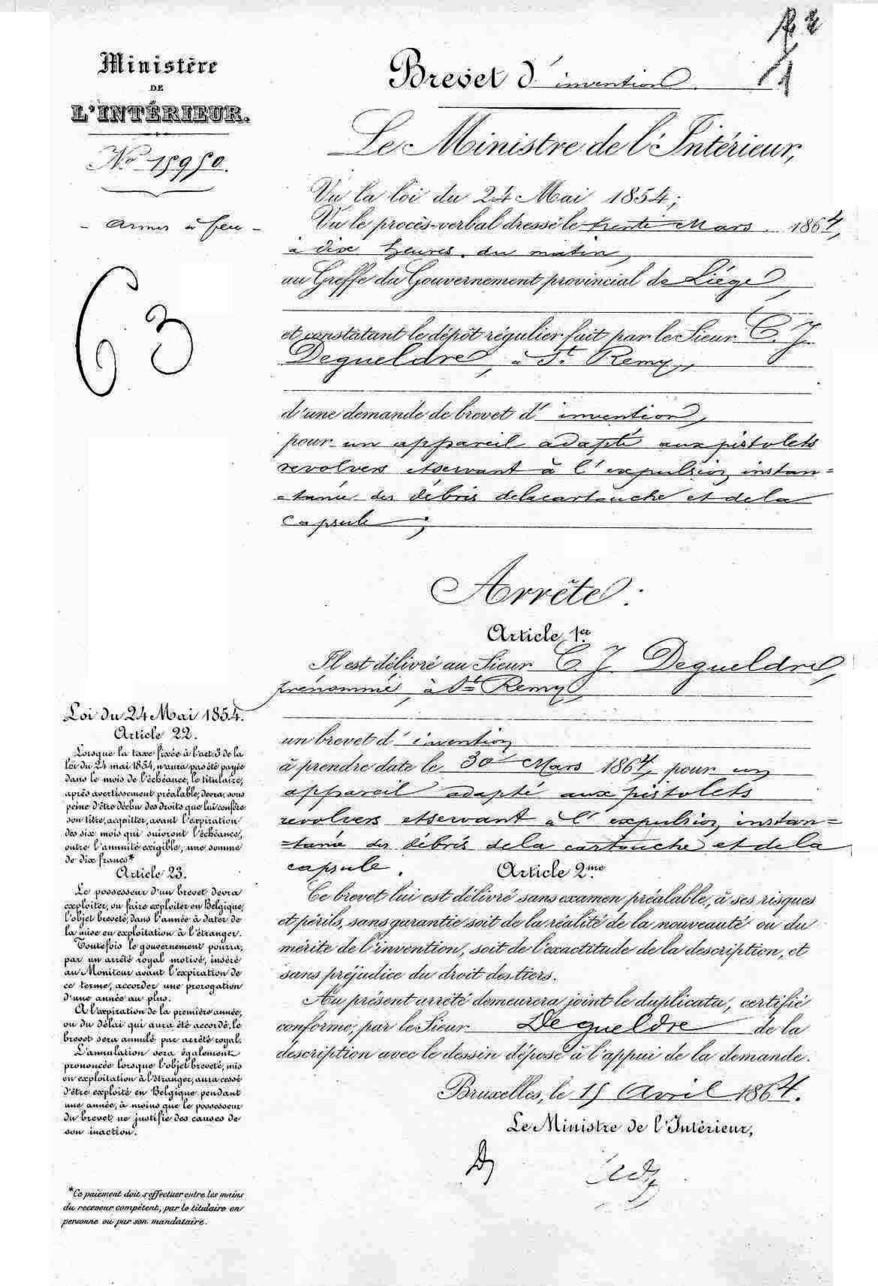 Ministère
DE
L'INTÉRIEUR.
No 15950.
- armes à feu -
63
Brevet d'invention.
Le Ministre de l'Intérieur,
Vu la loi du 24 Mai 1854;
Vu le procès-verbal dressé le trente Mars 1864,
à dix heures du matin,
au Greffe du Gouvernement provincial de Liége,
et constatant le dépôt régulier fait par le Sieur C. J.
Degueldre, à St. Remy,
d'une demande de brevet d'invention,
pour un appareil adapté aux pistolets
revolvers et servant à l'expulsion instan=
=tanée des débris de la cartouche et de la
capsule;
Arrête:
Article 1er
Il est délivré au Sieur C. J. Degueldre,
prénommé, à St. Remy,
un brevet d'invention
à prendre date le 30 Mars 1864, pour un
appareil adapté aux pistolets
revolvers et servant à l'expulsion instan=
=tanée des débris de la cartouche et de la
capsule.
Article 2me
Ce brevet lui est délivré sans examen préalable, à ses risques
et périls, sans garantie soit de la réalité de la nouveauté ou du
mérite de l'invention, soit de l'exactitude de la description, et
sans préjudice du droit des tiers.
Au présent arrêté demeurera joint le duplicata, certifié
conforme, par le Sieur Degueldre de la
description avec le dessin déposé à l'appui de la demande.
Bruxelles, le 15 Avril 1864.
Le Ministre de l'Intérieur,
Loi du 24 Mai 1854.
Article 22.
Lorsque la taxe fixée à l'art. 3 de la
loi du 24 mai 1854, n'aura pas été payée
dans le mois de l'échéance, le titulaire,
après avertissement préalable, devra, sous
peine d'être déchu des droits que lui confère
son titre, acquitter, avant l'expiration
des six mois qui suivront l'échéance,
outre l'annuité exigible, une somme
de dix francs*
Article 23.
Le possesseur d'un brevet devra
exploiter, ou faire exploiter en Belgique,
l'objet breveté, dans l'année à dater de
la mise en exploitation à l'étranger.
Toutefois le gouvernement pourra,
par un arrêté royal motivé, inséré
au Moniteur avant l'expiration de
ce terme, accorder une prorogation
d'une année au plus.
A l'expiration de la première année,
ou du délai qui aura été accordé, le
brevet sera annulé par arrêté royal.
L'annulation sera également
prononcée lorsque l'objet breveté, mis
en exploitation à l'étranger, aura cessé
d'être exploité en Belgique pendant
une année, à moins que le possesseur
du brevet ne justifie des causes de
son inaction.
*Ce paiement doit s'effectuer entre les mains
du receveur compétent, par le titulaire en
personne ou par son mandataire.